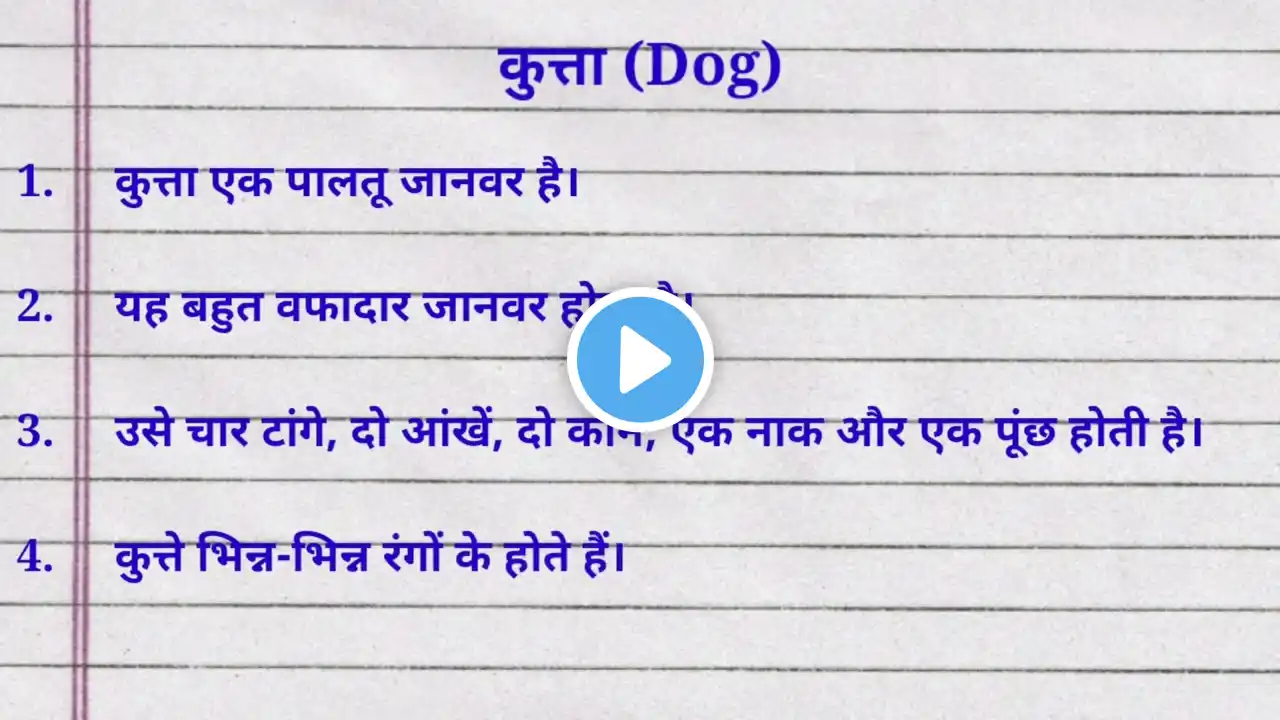 कुत्ता (Dog)
1. कुत्ता एक पालतू जानवर है।
2. यह बहुत वफादार जानवर है।
3. उसे चार टांगे, दो आंखें, दो कान, एक नाक और एक पूंछ होती है।
4. कुत्ते भिन्न-भिन्न रंगों के होते हैं।